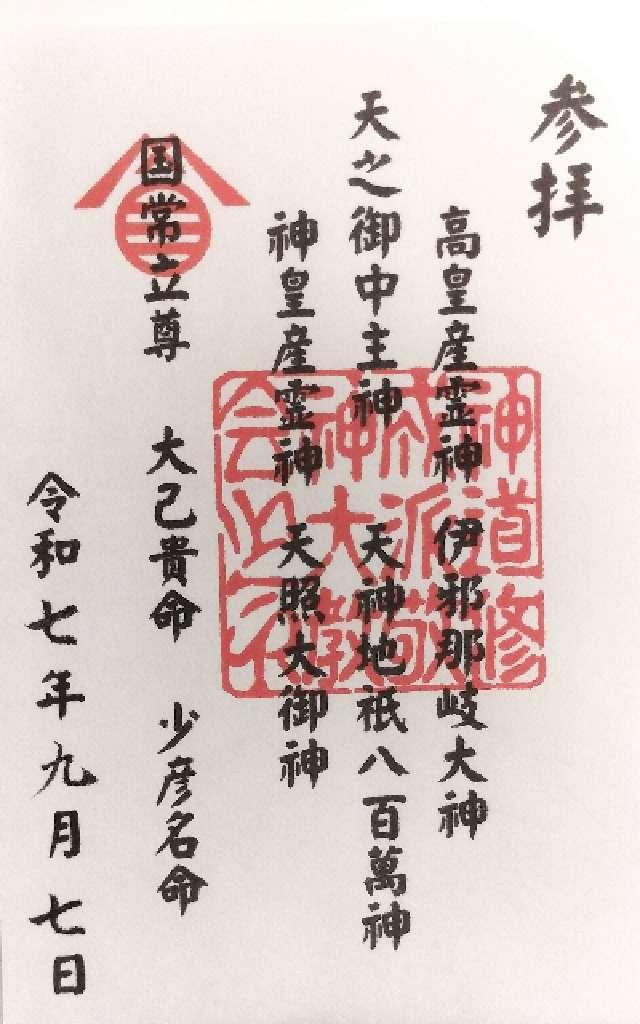 参拝
高皇産霊神 伊邪那岐大神
天之御中主神 天神地祇八百萬神
神皇産霊神 天照大御神
国常立尊 大己貴命 少彦名命
令和七年九月七日
神道修
成派敬
神大教
会